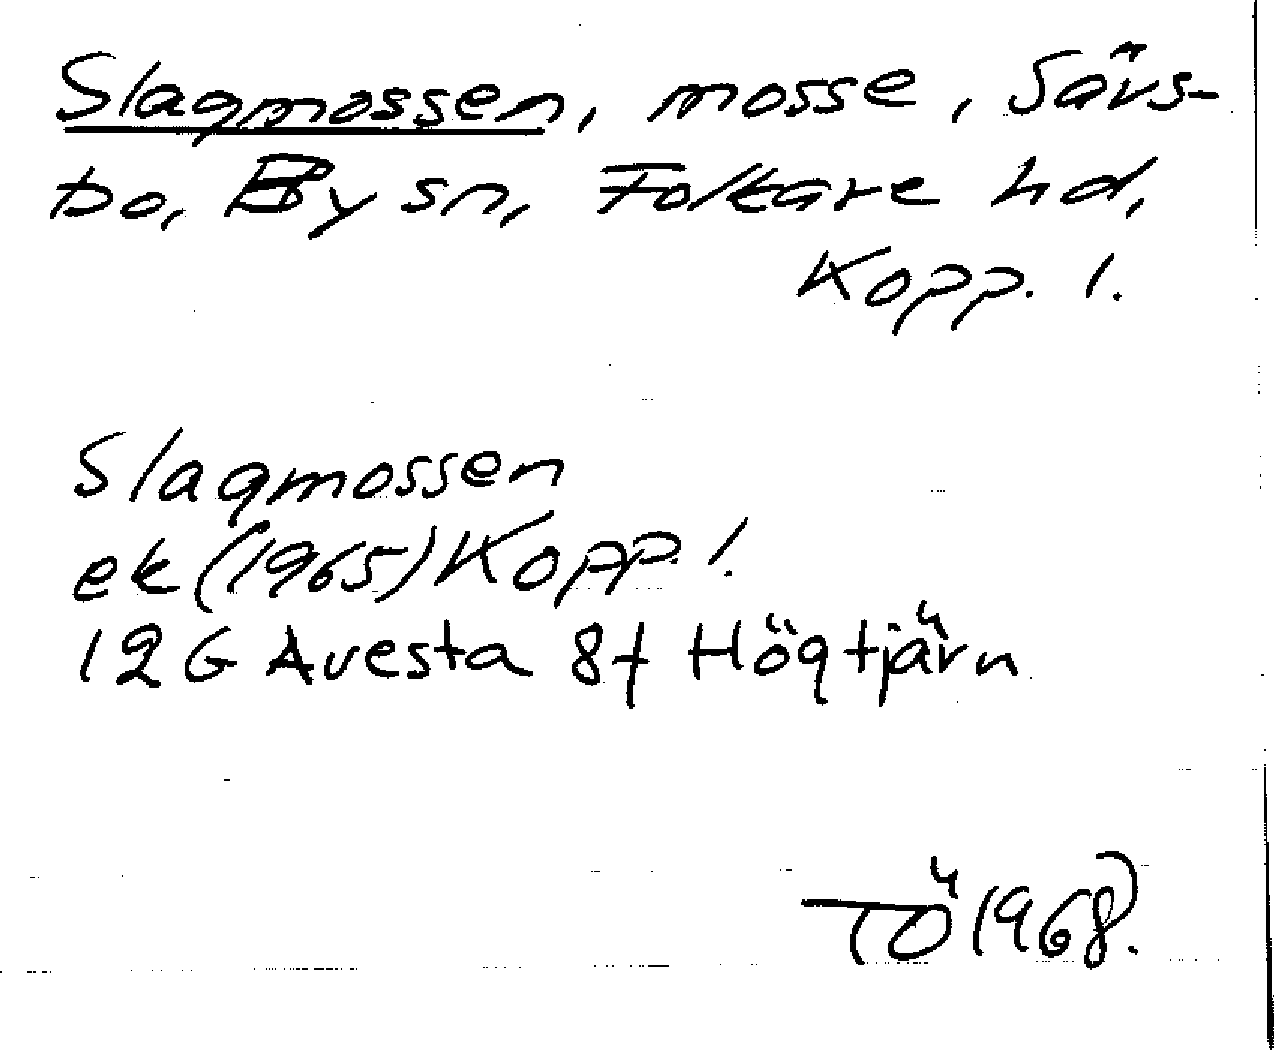 Slagmossen, mosse, Särs-
bo, By sn, Folkare hd,
Kopp. l.
Slagmossen
ek (1965) Kopp. l.
12G Avesta 8f Högtjärn
TÖ 1968).